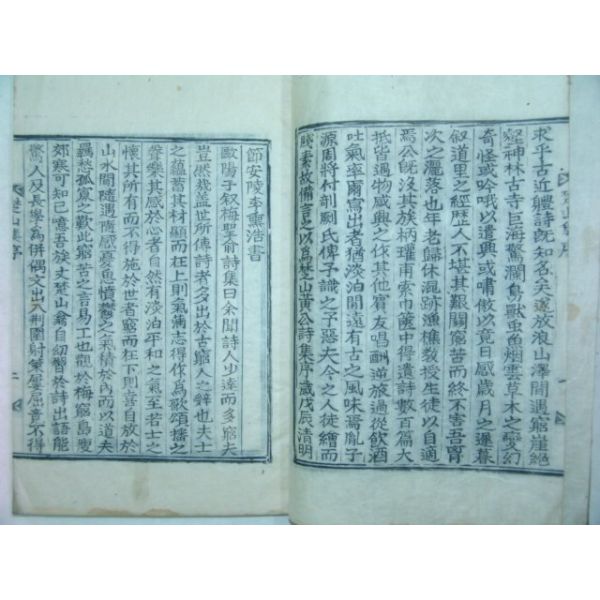 求乎古近體詩旣知名矣遂放浪山澤間遇窮崖絶
壑神林古寺巨海驚瀾鳥獸虫魚烟雲草木之變幻
奇怪或吟哦以遣興或嘯傲以竟日感歲月之遲暮
叙道里之經歷人不堪其艱關窮苦而終不害吾胷
次之灑落也年老歸休混跡漁樵敎授生徒以自適
焉公旣沒其族柄瓘甫索巾篋中得遺詩數百篇大
抵皆遇物感興之作其他賓友唱酬逆旅過從飮酒
吐氣率爾寫出者猶淡泊閒遠有古之風味焉胤子
源周將付剞劂氏俾子識之予忽夫今之人徒繪而
賤素故備言之以爲楚山黃公詩集序歲戊辰淸明
節安陵李熏浩書
歐陽子叙梅聖兪詩集曰余聞詩人少達而多窮夫
豈然哉盖世所傳詩者多出於古窮人之辭也夫士
之蘊蓄其材顯而在上則氣滿志得作爲歌頌播之
聲樂其感於心者自然有淡泊平和之氣至若士之
懷其所有而不得施於世者窮而在下則喜自放於
山水間隨遇隨感憂思憤鬱之氣積於內而以道夫
羈愁孤寡之歎此窮苦之言易工也觀於梅窮島瘦
郊寒可知已噫吾族丈楚山翁自幼習於詩出語能
驚人及長學爲併偶文出入荊圍射策屢屈竟不得
楚山集序 二